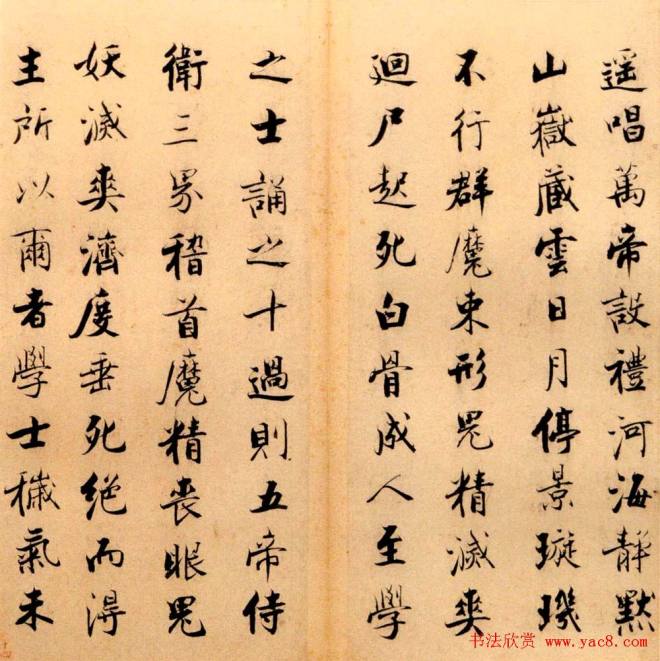 遥唱萬帝設禮河海靜默
山嶽藏雲日月停景璇璣
不行群魔束形鬼精滅爽
迴尸起死白骨成人至學
之士誦之十過則五帝侍
衛三界稽首魔精喪眼鬼
妖滅爽濟度垂死絕而得
主所以爾者學士穢氣未
书法欣赏 www.yac8.com